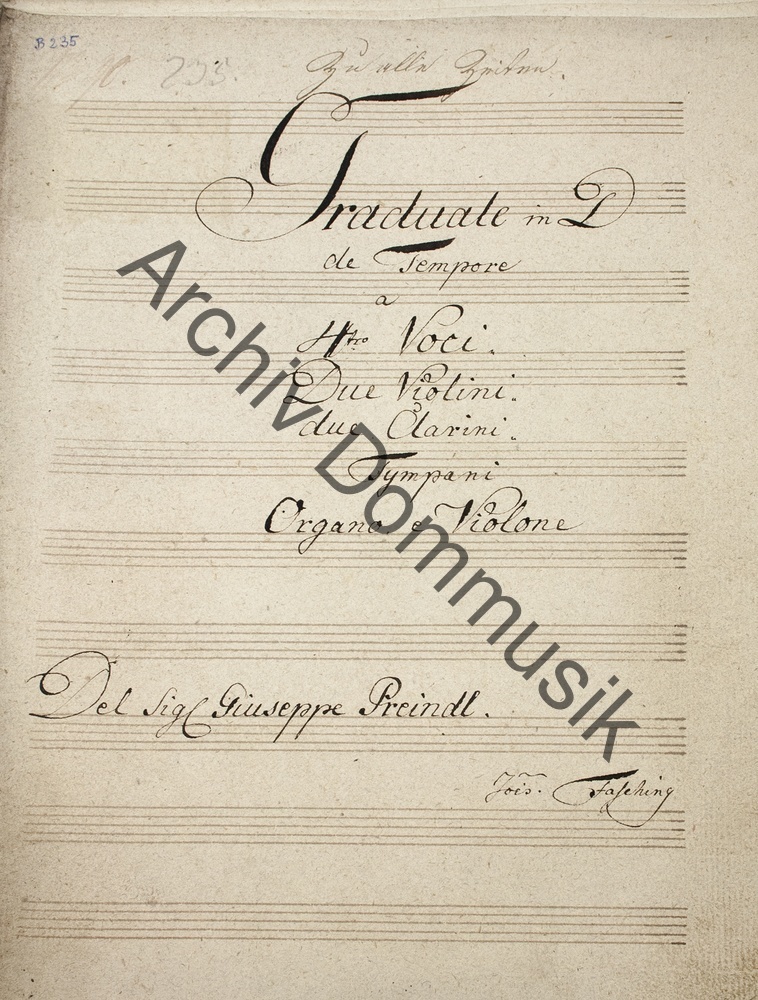 B 235
235.
Zu alle Zeiten.
Graduale in D
de Tempore
a
4tro Voci.
Due Violini.
due Clarini.
Tympani
Organo e Violone
Del Sigl Giuseppe Preindl.
Jois. Fasching
Archiv Dommusik